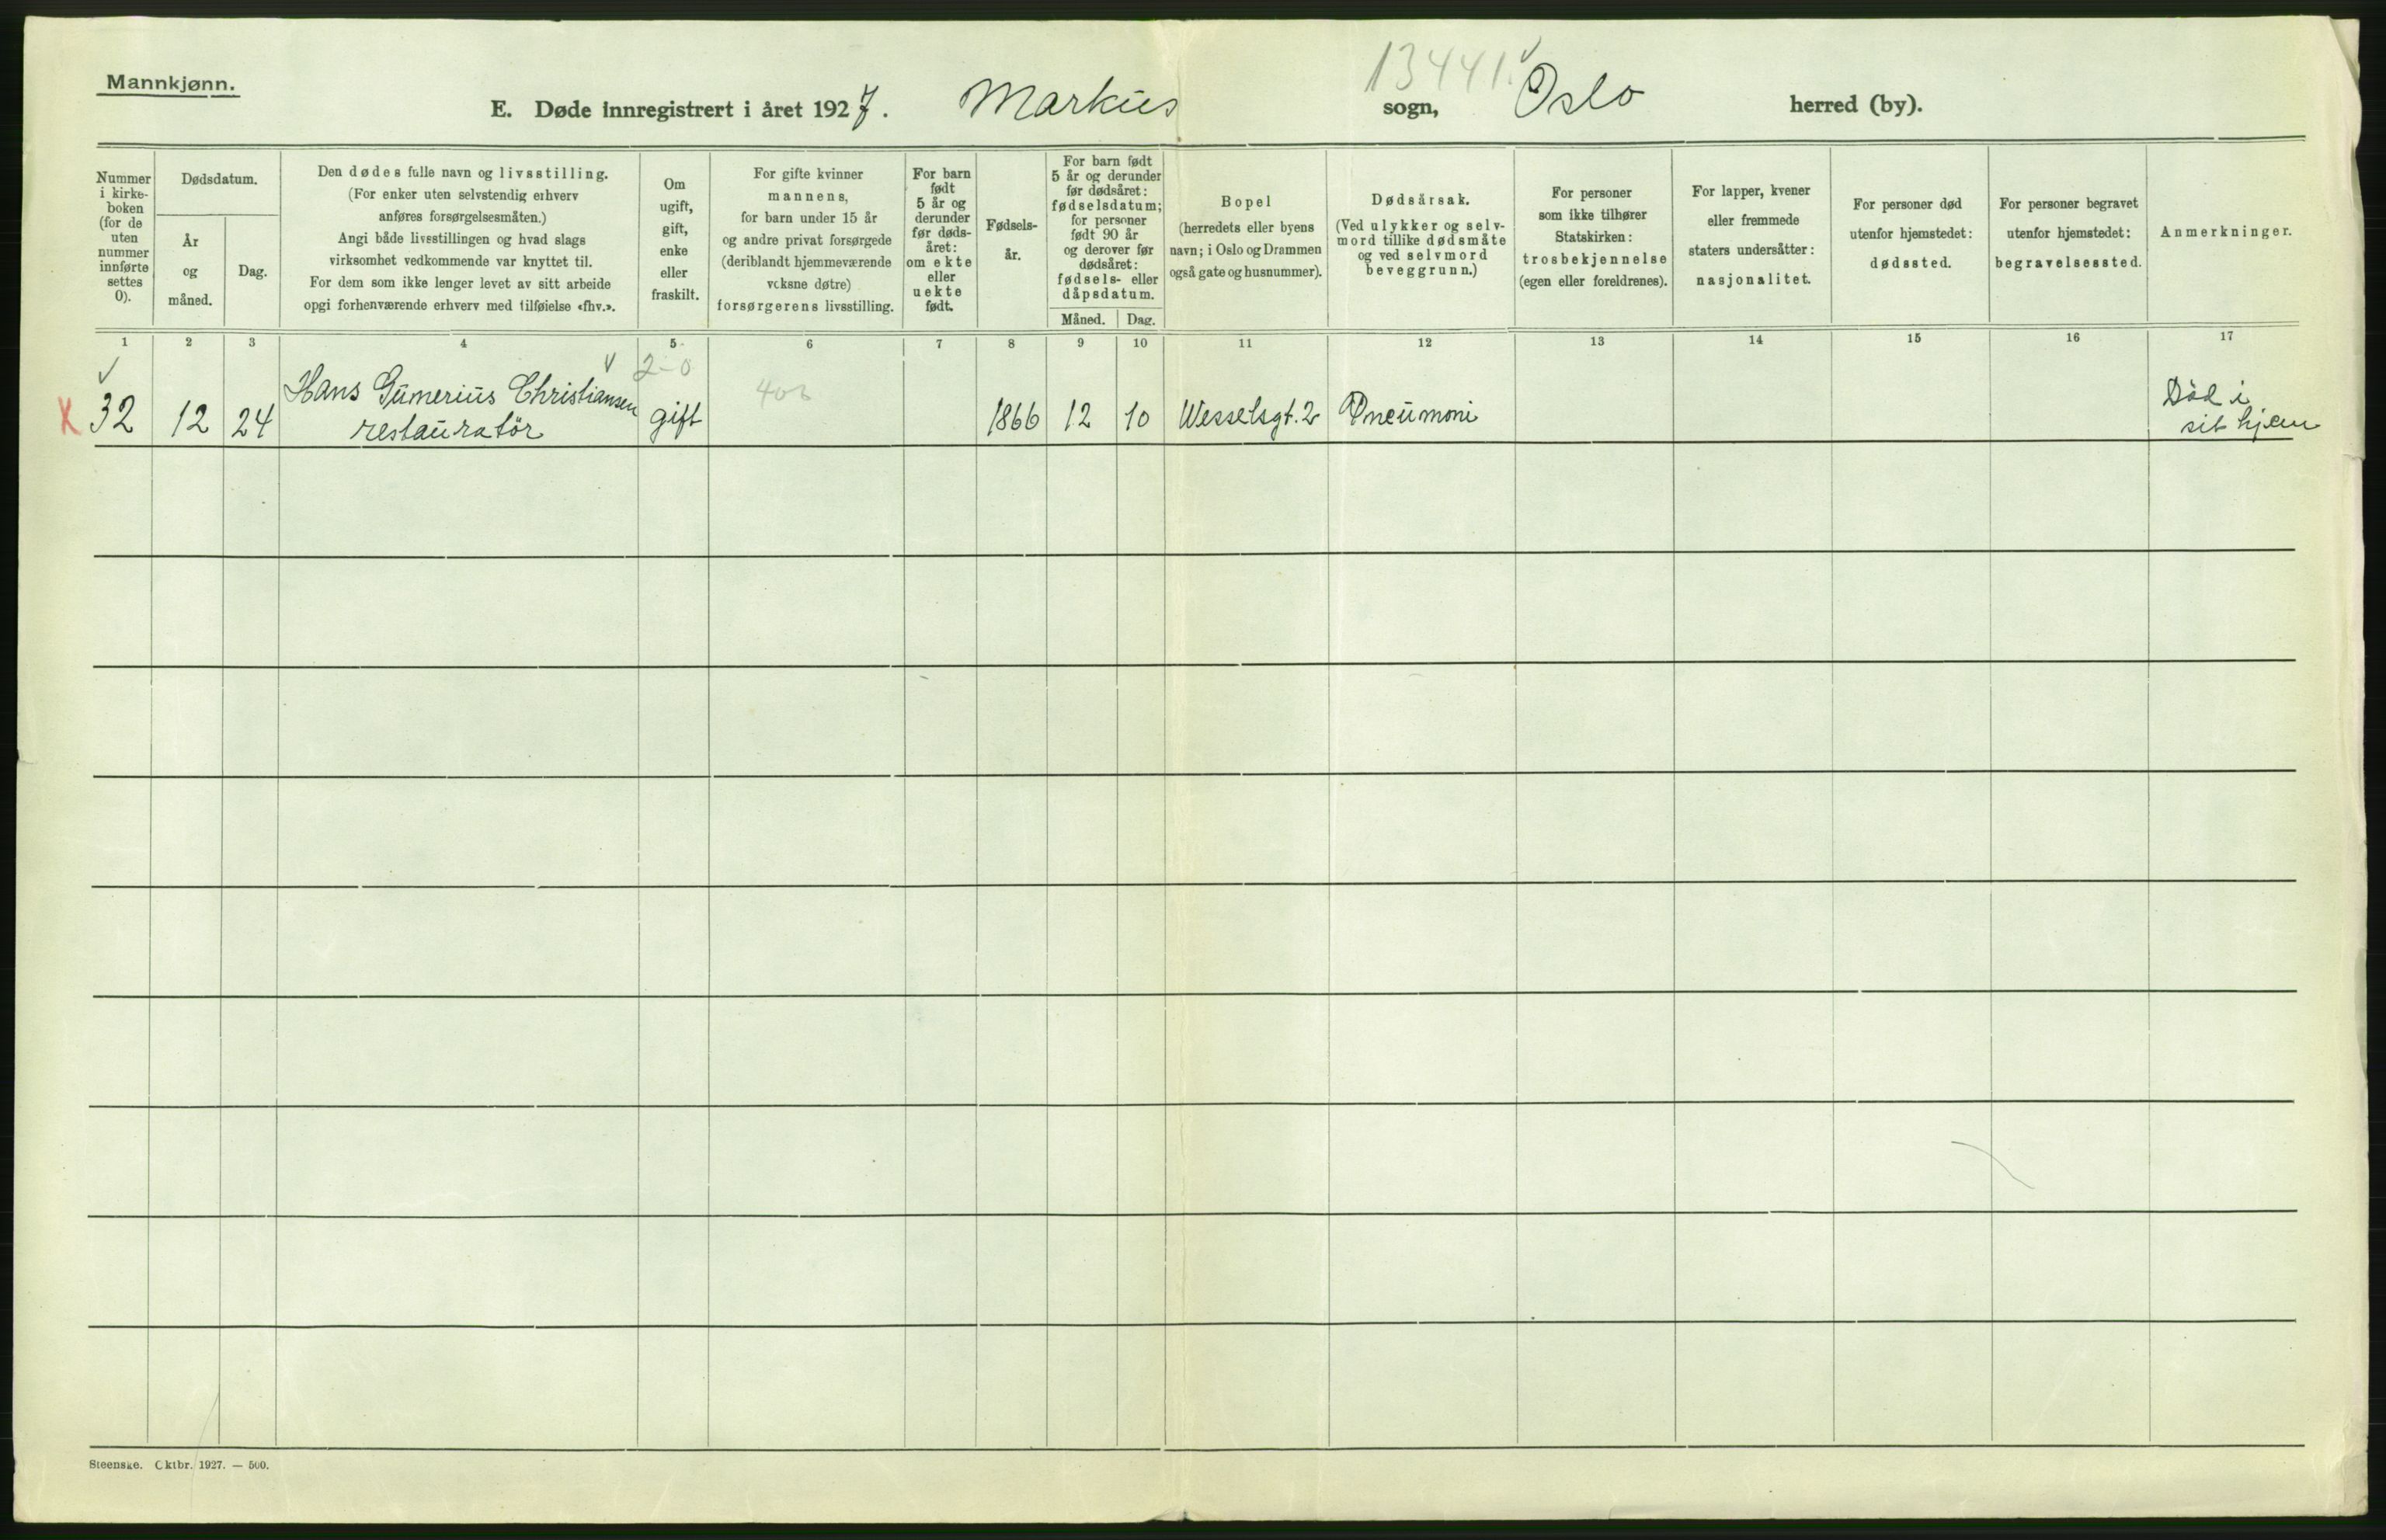 13441.
Mannkjønn.
E. Døde innregistrert i året 1927. Markus sogn, Oslo herred (by).
Nummer
i kirke-
boken
(for de
uten
nummer
innførte
settes
0).
Dødsdatum.
År
og
måned.
Dag.
Den dødes fulle navn og livsstilling.
(For enker uten selvstendig erhverv
anføres forsørgelsesmåten.)
Angi både livsstillingen og hvad slags
virksomhet vedkommende var knyttet til.
For dem som ikke lenger levet av sitt arbeide
opgi forhenværende erhverv med tilføielse «fhv.».
Om
ugift,
gift,
enke
eller
fraskilt.
For gifte kvinner
mannens,
for barn under 15 år
og andre privat forsørgede
(deriblandt hjemmeværende
voksne døtre)
forsørgerens livsstilling.
For barn
født
5 år og
derunder
før døds-
året:
om ekte
eller
uekte
født.
Fødsels-
år.
For barn født
5 år og derunder
før dødsåret:
fødselsdatum;
for personer
født 90 år
og derover før
dødsåret:
fødsels- eller
dåpsdatum.
Måned. Dag.
Bopel
(herredets eller byens
navn; i Oslo og Drammen
også gate og husnummer).
Dødsårsak.
(Ved ulykker og selv-
mord tillike dødsmåte
og ved selvmord
beveggrunn.)
For personer
som ikke tilhører
Statskirken:
trosbekjennelse
(egen eller foreldrenes).
For lapper, kvener
eller fremmede
staters undersåtter:
nasjonalitet.
For personer død
utenfor hjemstedet:
dødssted.
For personer begravet
utenfor hjemstedet:
begravelsessted.
Anmerkninger.
1 2 3 4 5 6 7 8 9 10 11 12 13 14 15 16 17
2-0
Hans Gumerius Christiansen
Død i
32 12 24 restauratör gift 1866 12 10 Wesselsgt. 2 Pneumoni sit hjem
Steenske. Oktbr. 1927. — 500.